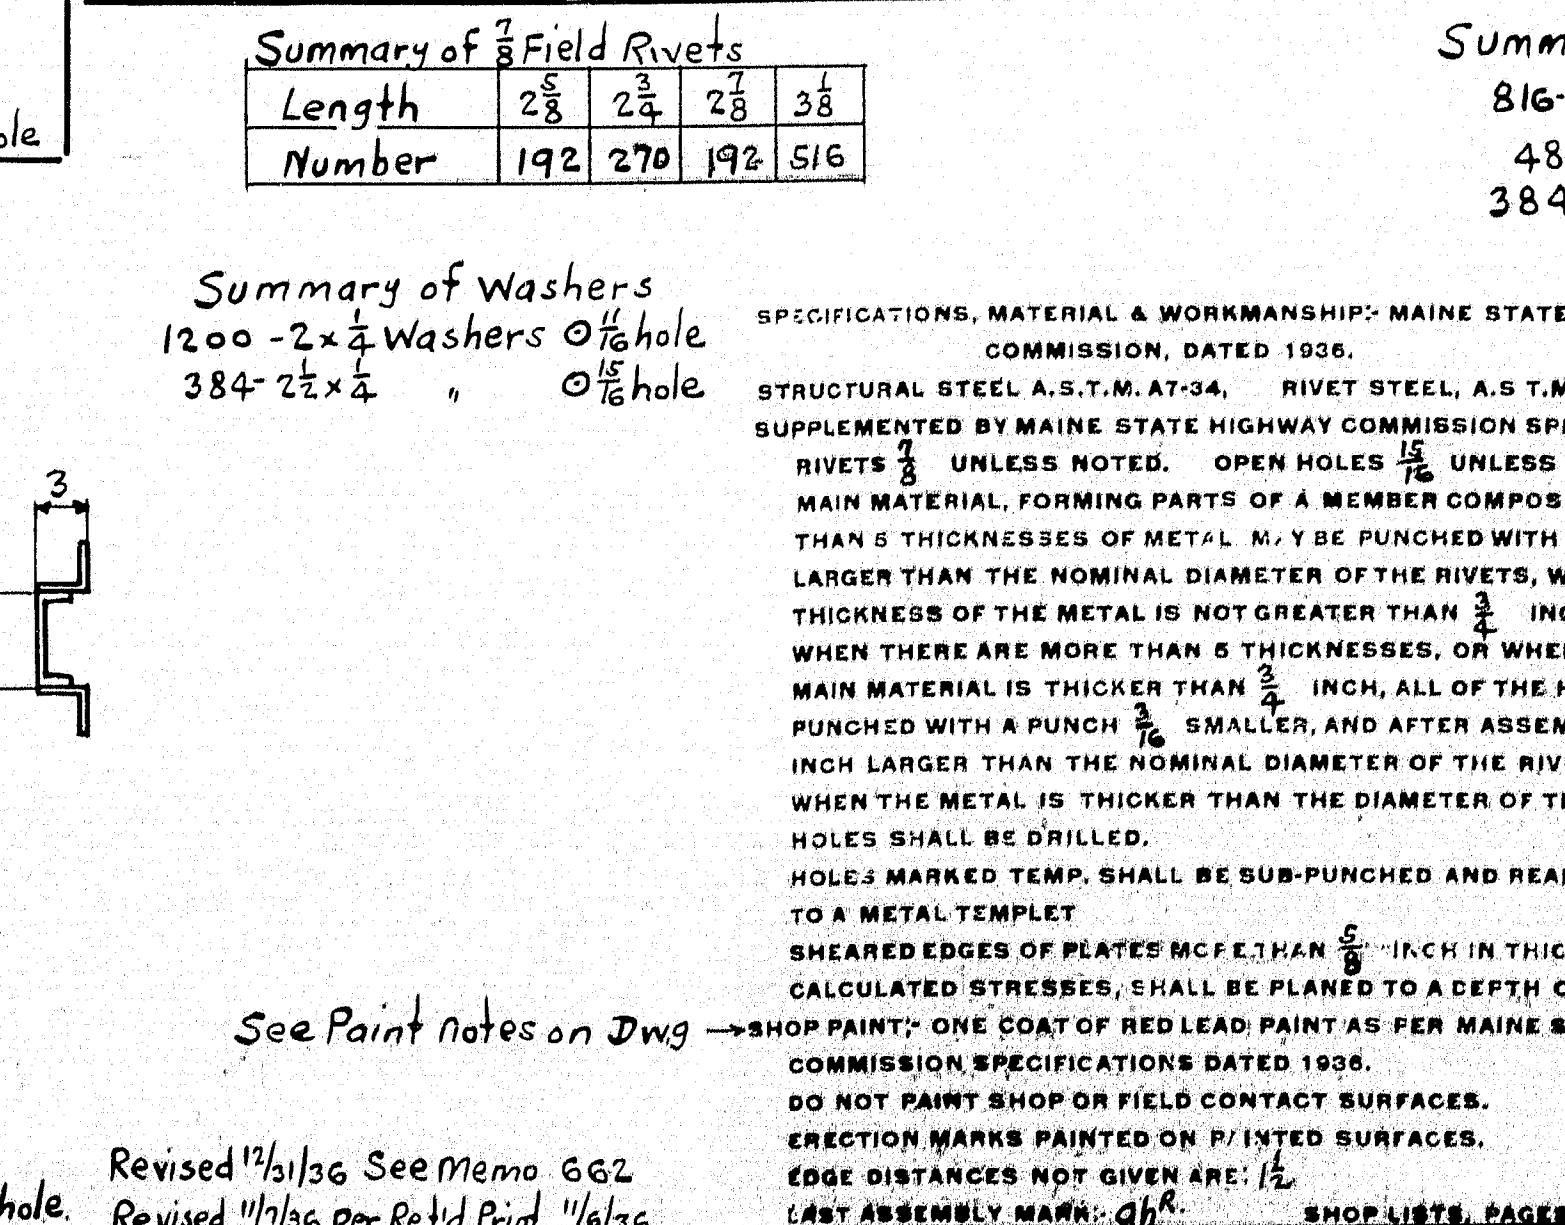 Summary of 7/8 Field Rivets
Length 2 5/8 2 3/4 2 7/8 3 1/8
Number 192 270 192 516
Summ
816-
48
384
ole
Summary of Washers
1200 - 2 x 1/4 Washers ⊙ 11/16 hole
384 - 2 1/2 x 1/4 " ⊙ 15/16 hole
3
SPECIFICATIONS, MATERIAL & WORKMANSHIP:- MAINE STATE
COMMISSION, DATED 1936.
STRUCTURAL STEEL A.S.T.M. A7-34, RIVET STEEL, A.S T.M
SUPPLEMENTED BY MAINE STATE HIGHWAY COMMISSION SP
RIVETS 7/8 UNLESS NOTED. OPEN HOLES 15/16 UNLESS
MAIN MATERIAL, FORMING PARTS OF A MEMBER COMPOS
THAN 5 THICKNESSES OF METAL MAY BE PUNCHED WITH
LARGER THAN THE NOMINAL DIAMETER OF THE RIVETS, W
THICKNESS OF THE METAL IS NOT GREATER THAN 3/4 INC
WHEN THERE ARE MORE THAN 5 THICKNESSES, OR WHE
MAIN MATERIAL IS THICKER THAN 3/4 INCH, ALL OF THE H
PUNCHED WITH A PUNCH 3/16 SMALLER, AND AFTER ASSEM
INCH LARGER THAN THE NOMINAL DIAMETER OF THE RIV
WHEN THE METAL IS THICKER THAN THE DIAMETER OF T
HOLES SHALL BE DRILLED.
HOLES MARKED TEMP. SHALL BE SUB-PUNCHED AND REA
TO A METAL TEMPLET
SHEARED EDGES OF PLATES MORE THAN 5/8 INCH IN THIC
CALCULATED STRESSES, SHALL BE PLANED TO A DEPTH O
See Paint notes on Dwg → SHOP PAINT:- ONE COAT OF RED LEAD PAINT AS PER MAINE S
COMMISSION SPECIFICATIONS DATED 1936.
DO NOT PAINT SHOP OR FIELD CONTACT SURFACES.
ERECTION MARKS PAINTED ON PAINTED SURFACES.
EDGE DISTANCES NOT GIVEN ARE: 1 1/2
LAST ASSEMBLY MARK:- ahR. SHOP LISTS, PAGES
Revised 12/31/36 See Memo 662
hole.
Revised 11/7/36 per Ret'd Print 11/6/36